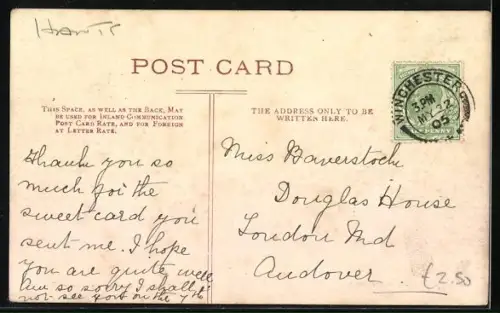 HANTS
POST CARD
THIS SPACE, AS WELL AS THE BACK, MAY
BE USED FOR INLAND COMMUNICATION
POST CARD RATE, AND FOR FOREIGN
AT LETTER RATE.
THE ADDRESS ONLY TO BE
WRITTEN HERE.
WINCHESTER
3 PM
22
05
PENNY
Thank you so
much for the
sweet card you
sent me. I hope
you are quite well
Am so sorry I shall
not see you on the 7th
Miss Baverstock
Douglas House
London Rd
Andover.
£2.50